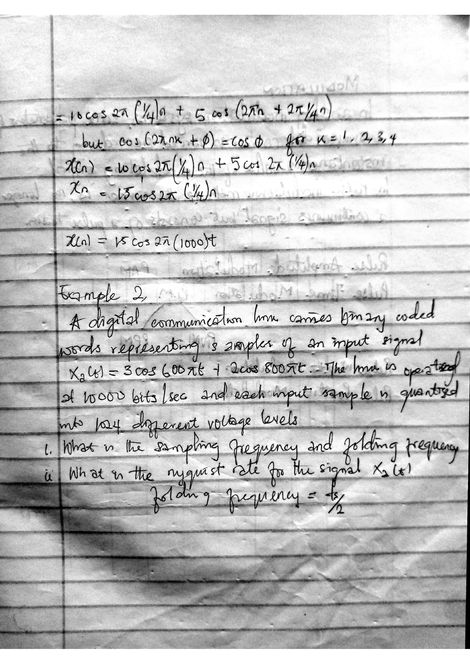 = 10 cos 2π (1/4)n + 5 cos (2πn + 2π 1/4 n)
but cos (2πnk + φ) = cos φ for k = 1, 2, 3, 4
x(n) = 10 cos 2π(1/4)n + 5 cos 2π (1/4)n
xn = 15 cos 2π (1/4)n
x(n) = 15 cos 2π (1000)t
Example 2,
A digital communication line carries binary coded
words representing samples of an input signal
Xa(t) = 3 cos 600πt + 2cos 800πt. The line is operated
at 10000 bits/sec and each input sample is quantized
into 1024 different voltage levels
i. What is the sampling frequency and folding frequency
ii What is the nyquist rate for the signal Xa(t)
folding frequency = fs/2